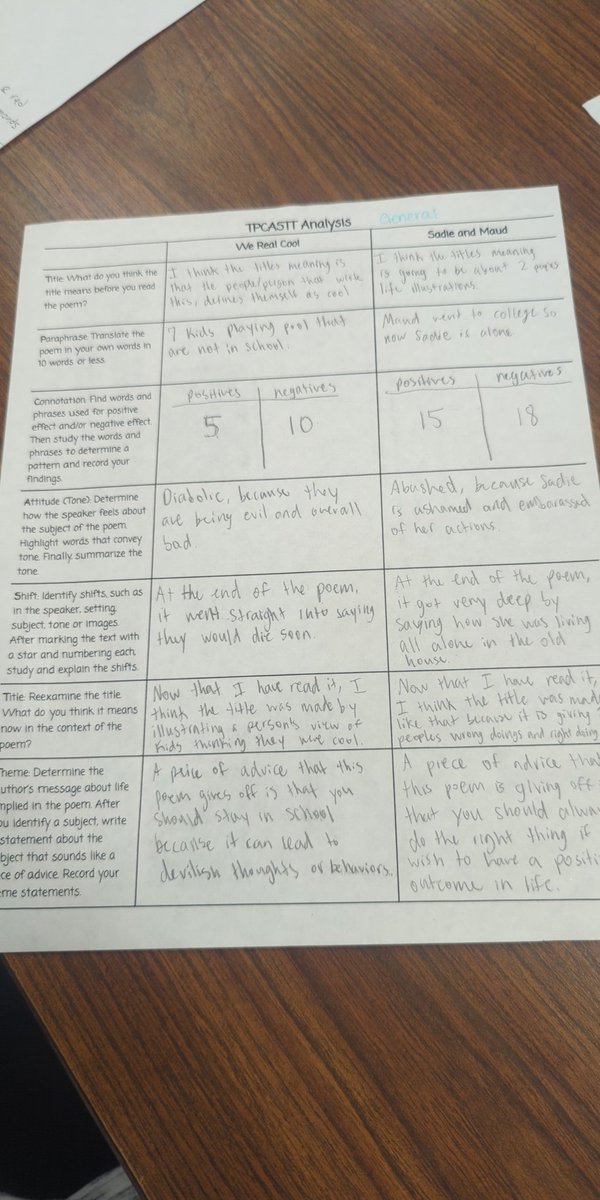 & red
words
TPCASTT Analysis
General
We Real Cool
Sadie and Maud
Title: What do you think the
title means before you read
the poem?
I think the titles meaning is
that the people/person that wrote
this, defines themself as cool
I think the titles meaning
is going to be about 2
life illustrations.
Paraphrase: Translate the
poem in your own words in
10 words or less.
7 kids playing pool that
are not in school.
Maud went to college so
now Sadie is alone
Connotation: Find words and
phrases used for positive
effect and/or negative effect.
Then study the words and
phrases to determine a
pattern and record your
findings.
positives
negatives
5
10
positives
negatives
15
18
Attitude (Tone): Determine
how the speaker feels about
the subject of the poem.
Highlight words that convey
tone. Finally, summarize the
tone.
Diabolic, because they
are being evil and overall
bad.
Abashed, because Sadie
is ashamed and embarassed
of her actions.
Shift: Identify shifts, such as
in the speaker, setting,
subject, tone or images.
After marking the text with
a star and numbering each,
study and explain the shifts.
At the end of the poem,
it went straight into saying
they would die soon.
At the end of the poem,
it got very deep by
saying how she was living
all alone in the old
house.
Title: Reexamine the title.
What do you think it means
now in the context of the
poem?
Now that I have read it, I
think the title was made by
illustrating a person's view of
kids thinking they were cool.
Now that I have read it,
I think the title was made
like that because it is giving 2
peoples wrong doings and right doing
heme: Determine the
uthor's message about life
mplied in the poem. After
ou identify a subject, write
statement about the
bject that sounds like a
ce of advice. Record your
eme statements.
A peice of advice that this
poem gives off is that you
should stay in school
because it can lead to
devilish thoughts or behaviors.
A piece of advice that
this poem is giving off
that you should alway
do the right thing if
wish to have a positi
outcome in life.